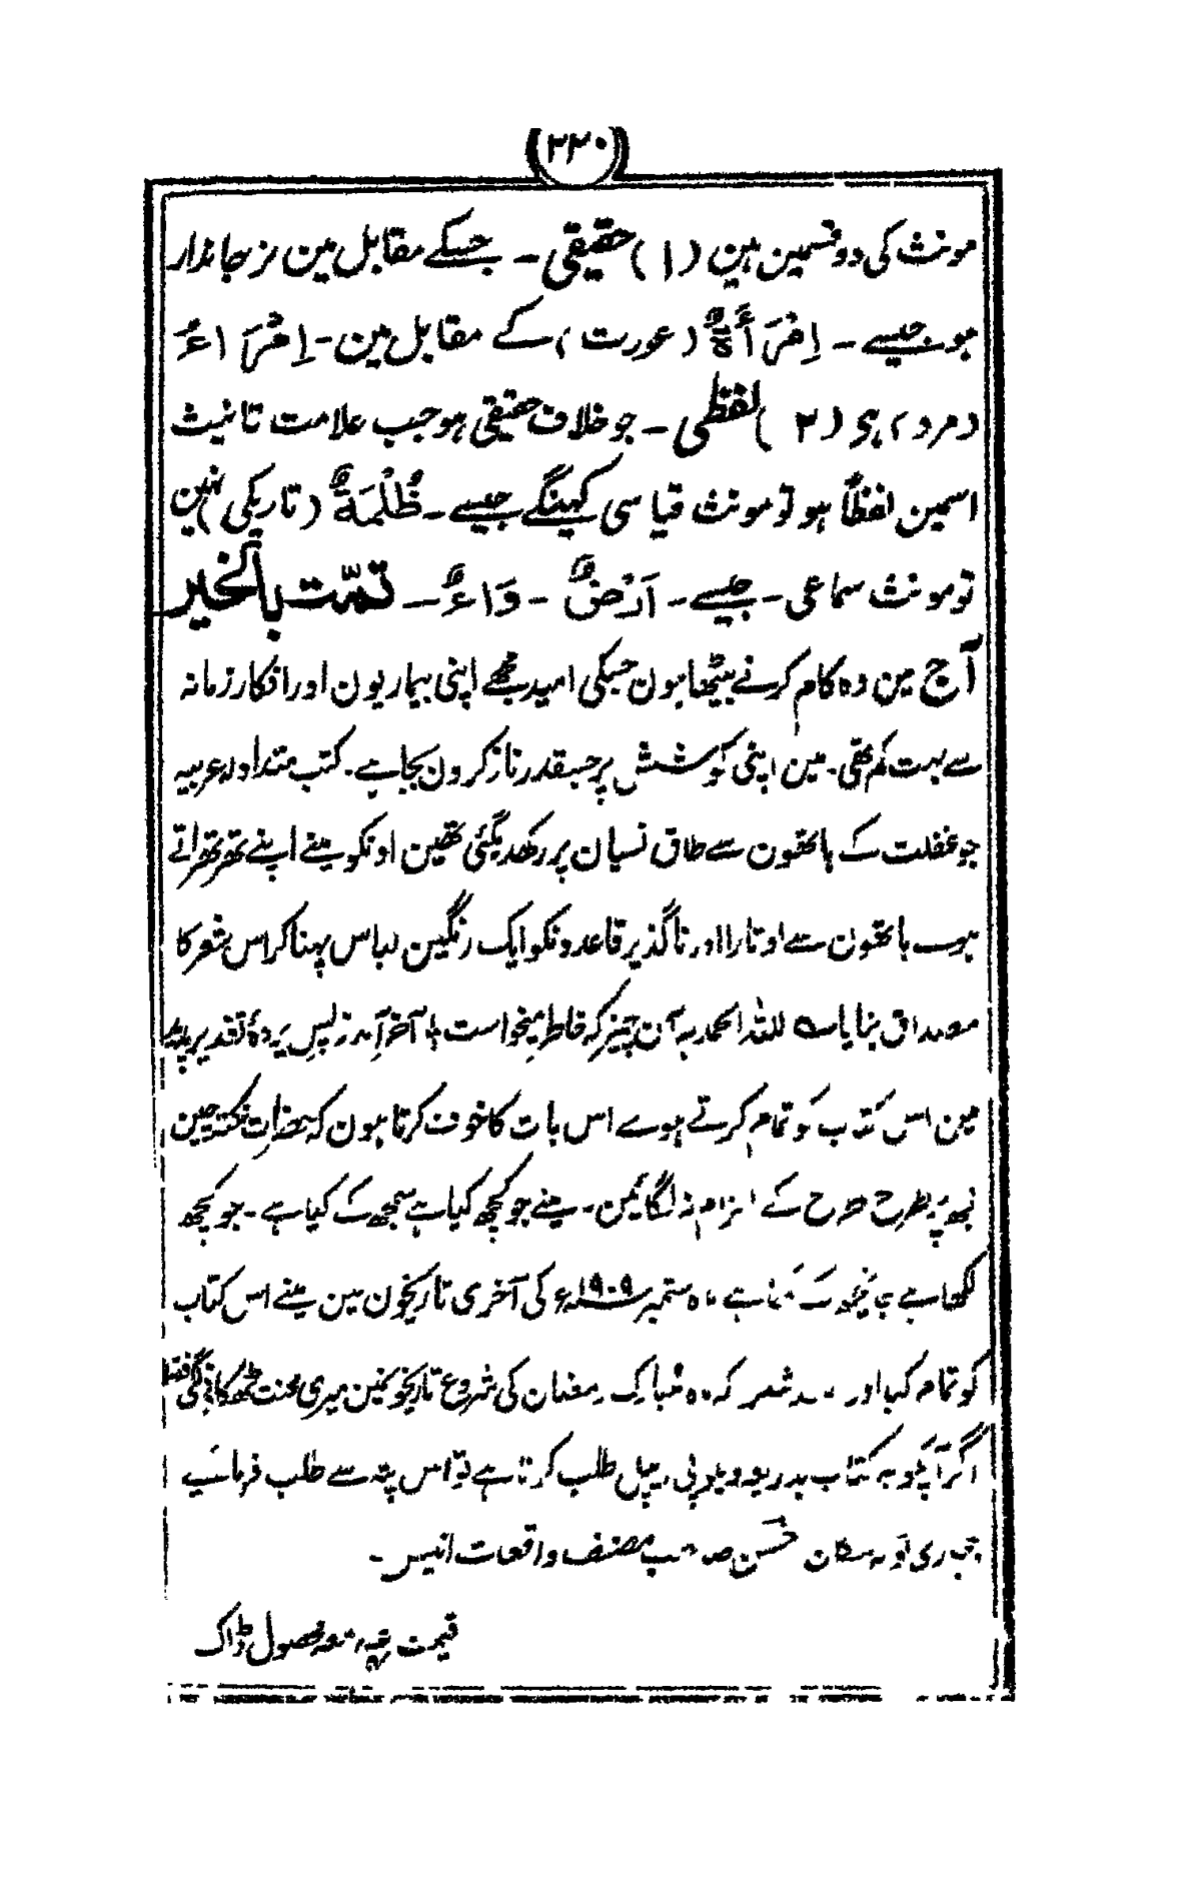 (۲۲۰)
مونث کی دو قسمین ہین (۱) حقیقی ۔ جسکے مقابل مین نر جاندار
ہو جیسے ۔ اِمْرَأَۃٌ (عورت) کے مقابل مین ۔ اِمْرَاءٌ
(مرد) ہی (۲) لفظی ۔ جو خلاف حقیقی ہو جب علامت تانیث
اسمین لفظاً ہو تو مونث قیاسی کہینگے جیسے ۔ ظُلْمَۃٌ (تاریکی) نہین
تو مونث سماعی ۔ جیسے ۔ اَرْضٌ ۔ وَاءٌ ۔ تمّت بالخیر
آج مین وہ کام کرنے بیٹھا ہون جسکی امید مجھے اپنی بیماریون اور افکار زمانہ
سے بہت کم تھی ۔ مین اپنی کوشش پر جسقدر ناز کرون بجا ہے ۔ کتب متداولہ عربیہ
جو غفلت کے ہاتھون سے طاق نسیان پر رکھدیگئی تھین اونکو مینے اپنے تھرتھراتے
ہوے ہاتھون سے اوتارا اور ناگذیر قاعدونکو ایک رنگین لباس پہنا کر اس شعر کا
مصداق بنایا ؎ للہ الحمد ہر آن چیز کہ خاطر میخواست ؛ آخر آمد ز پسِ پردۂ تقدیر پدید
مین اس کتاب کو تمام کرتے ہوے اس بات کا خوف کرتا ہون کہ حضراتِ نکتہ چین
مجھ پر طرح طرح کے الزام نہ لگائین ۔ مینے جو کچھ کیا ہے سمجھ کے کیا ہے ۔ جو کچھ
لکھا ہے ہے ماہ ستمبر ۱۹۰۹ء کی آخری تاریخون مین مینے اس کتاب
کو تمام کیا اور شکر کہ ماہ مبارک رمضان کی شروع تاریخونمین میری محنت ٹھکانے لگی فقط
اگر آپکو یہ کتاب بذریعہ ویلو پی ایبل طلب کرنا ہے تو اس پتہ سے طلب فرمائیے
مکان حسن صاحب مصنف واقعات انیس ۔
قیمت معہ محصول ڈاک